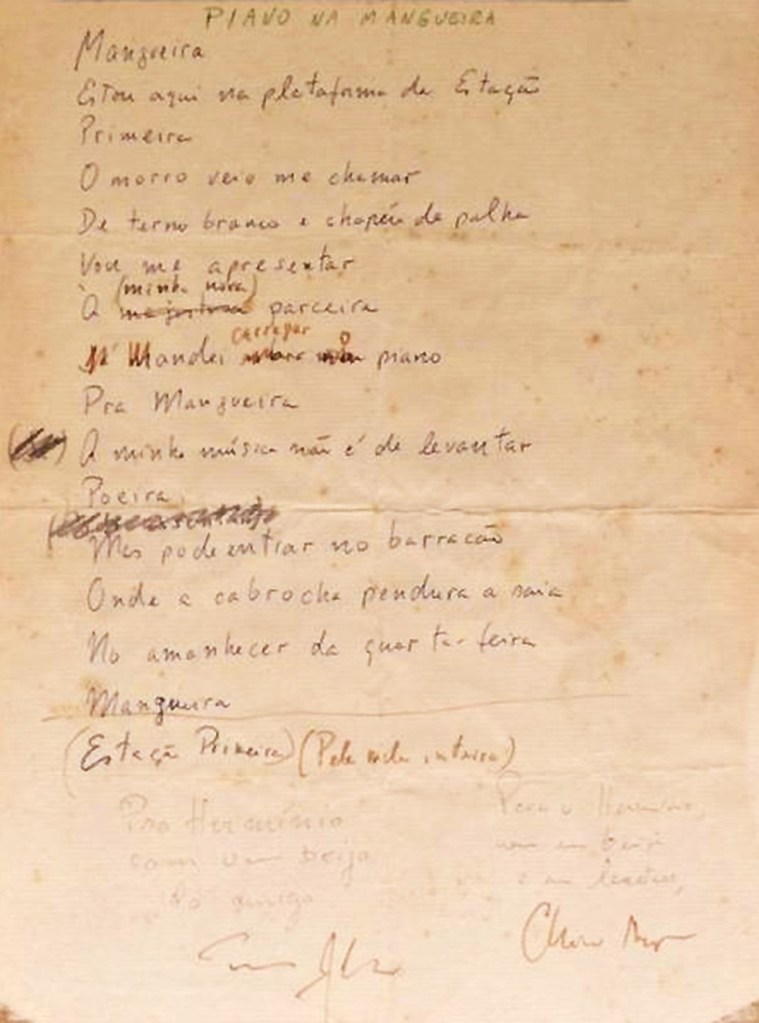 PIANO NA MANGUEIRA
Mangueira
Estou aqui na plataforma da Estação
Primeira
O morro veio me chamar
De terno branco e chapéu de palha
Vou me apresentar
(minha nova)
À parceira
Já Mandei carregar o piano
Pra Mangueira
A minha música não é de levantar
Poeira
Mas pode entrar no barracão
Onde a cabrocha pendura a saia
No amanhecer da quarta-feira
Mangueira
(Estação Primeira) (Pela
Pro Hermínio
com um beijo
do amigo
Para o Hermínio,